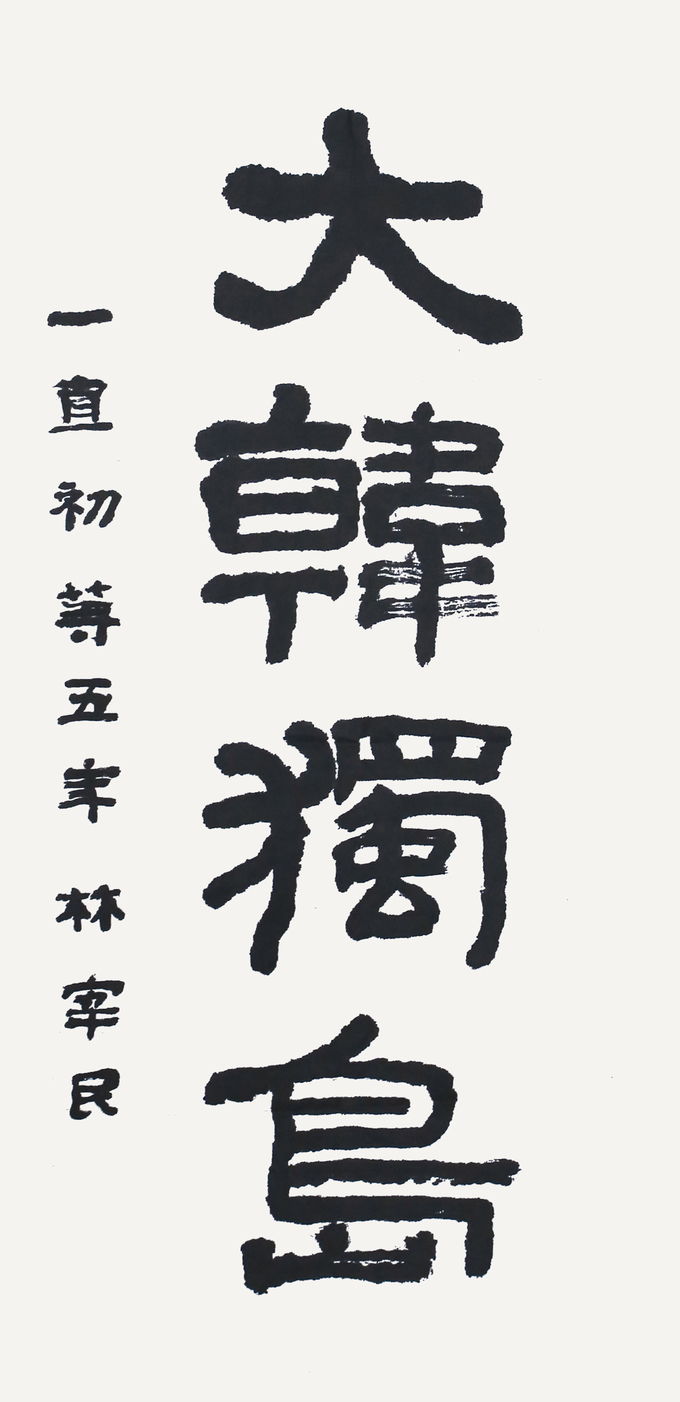 大韓獨島
一直初等五年 林宰民